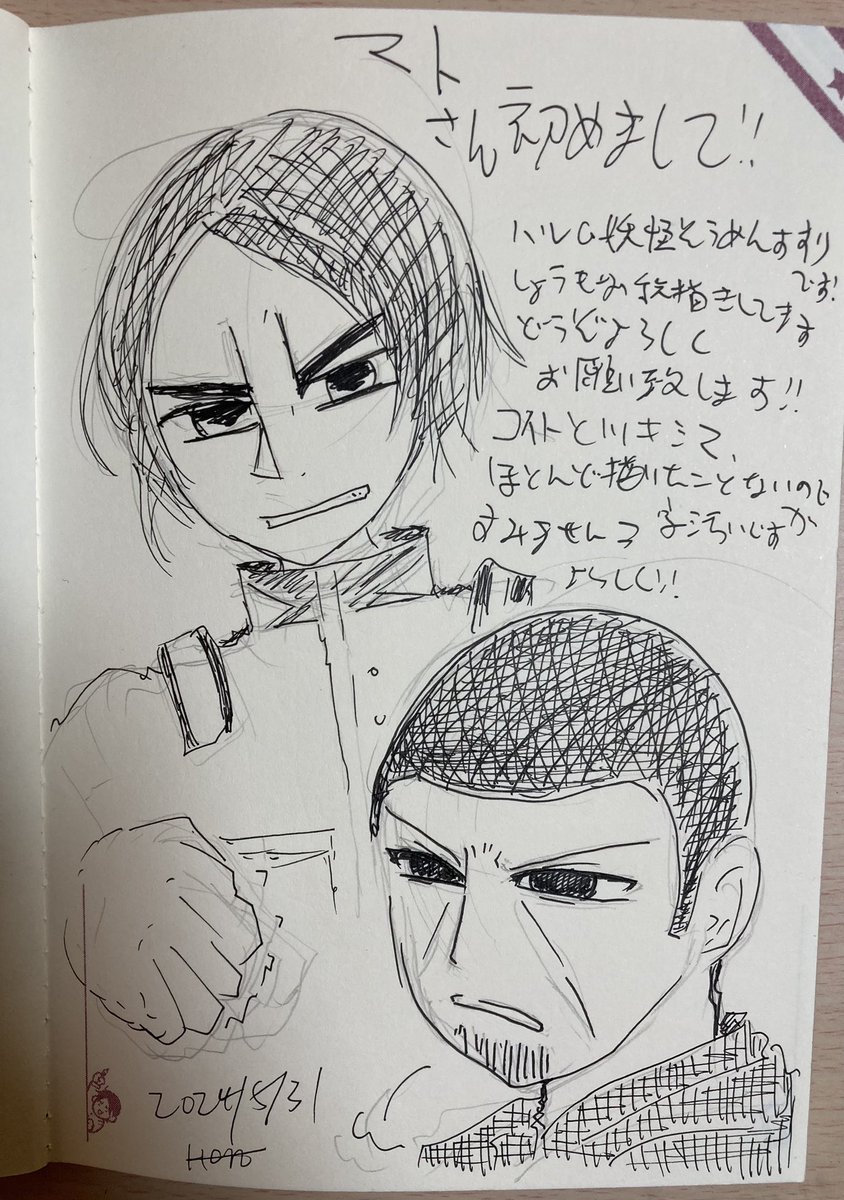 マト
さん初めまして!!
ハルの妖怪そうめんすすり
です!
しょうもない絵描きしてます
どうぞよろしく
お願い致します!!
コイトとツキシマ、
ほとんど描いたことないので
すみません 字汚いですが
よろしく!!
2024/5/31